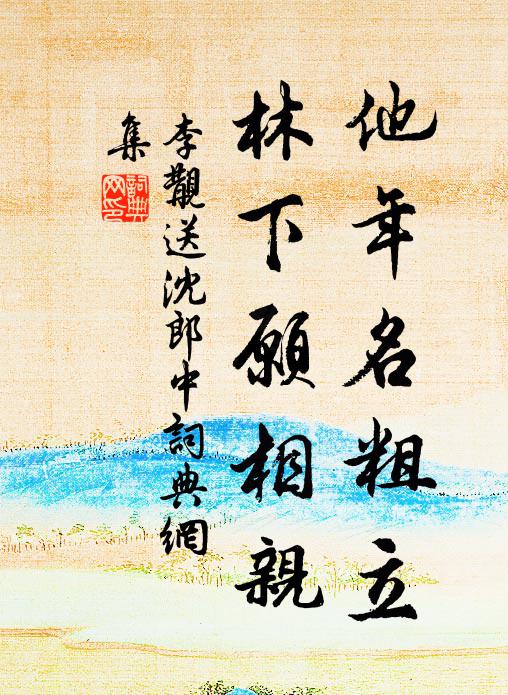 他年名粗立
林下願相親
李覯送沈郎中詞典網
集
詞典網印